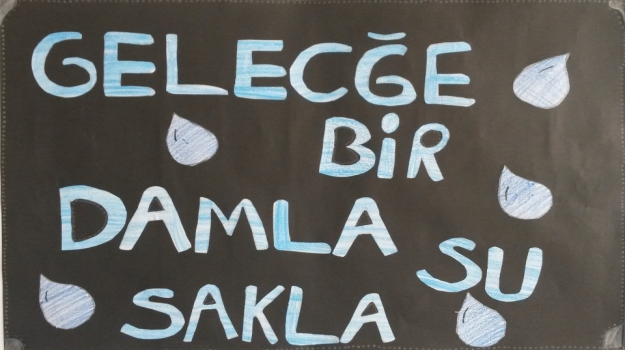 GELECĞE
BİR
DAMLA SU
SAKLA